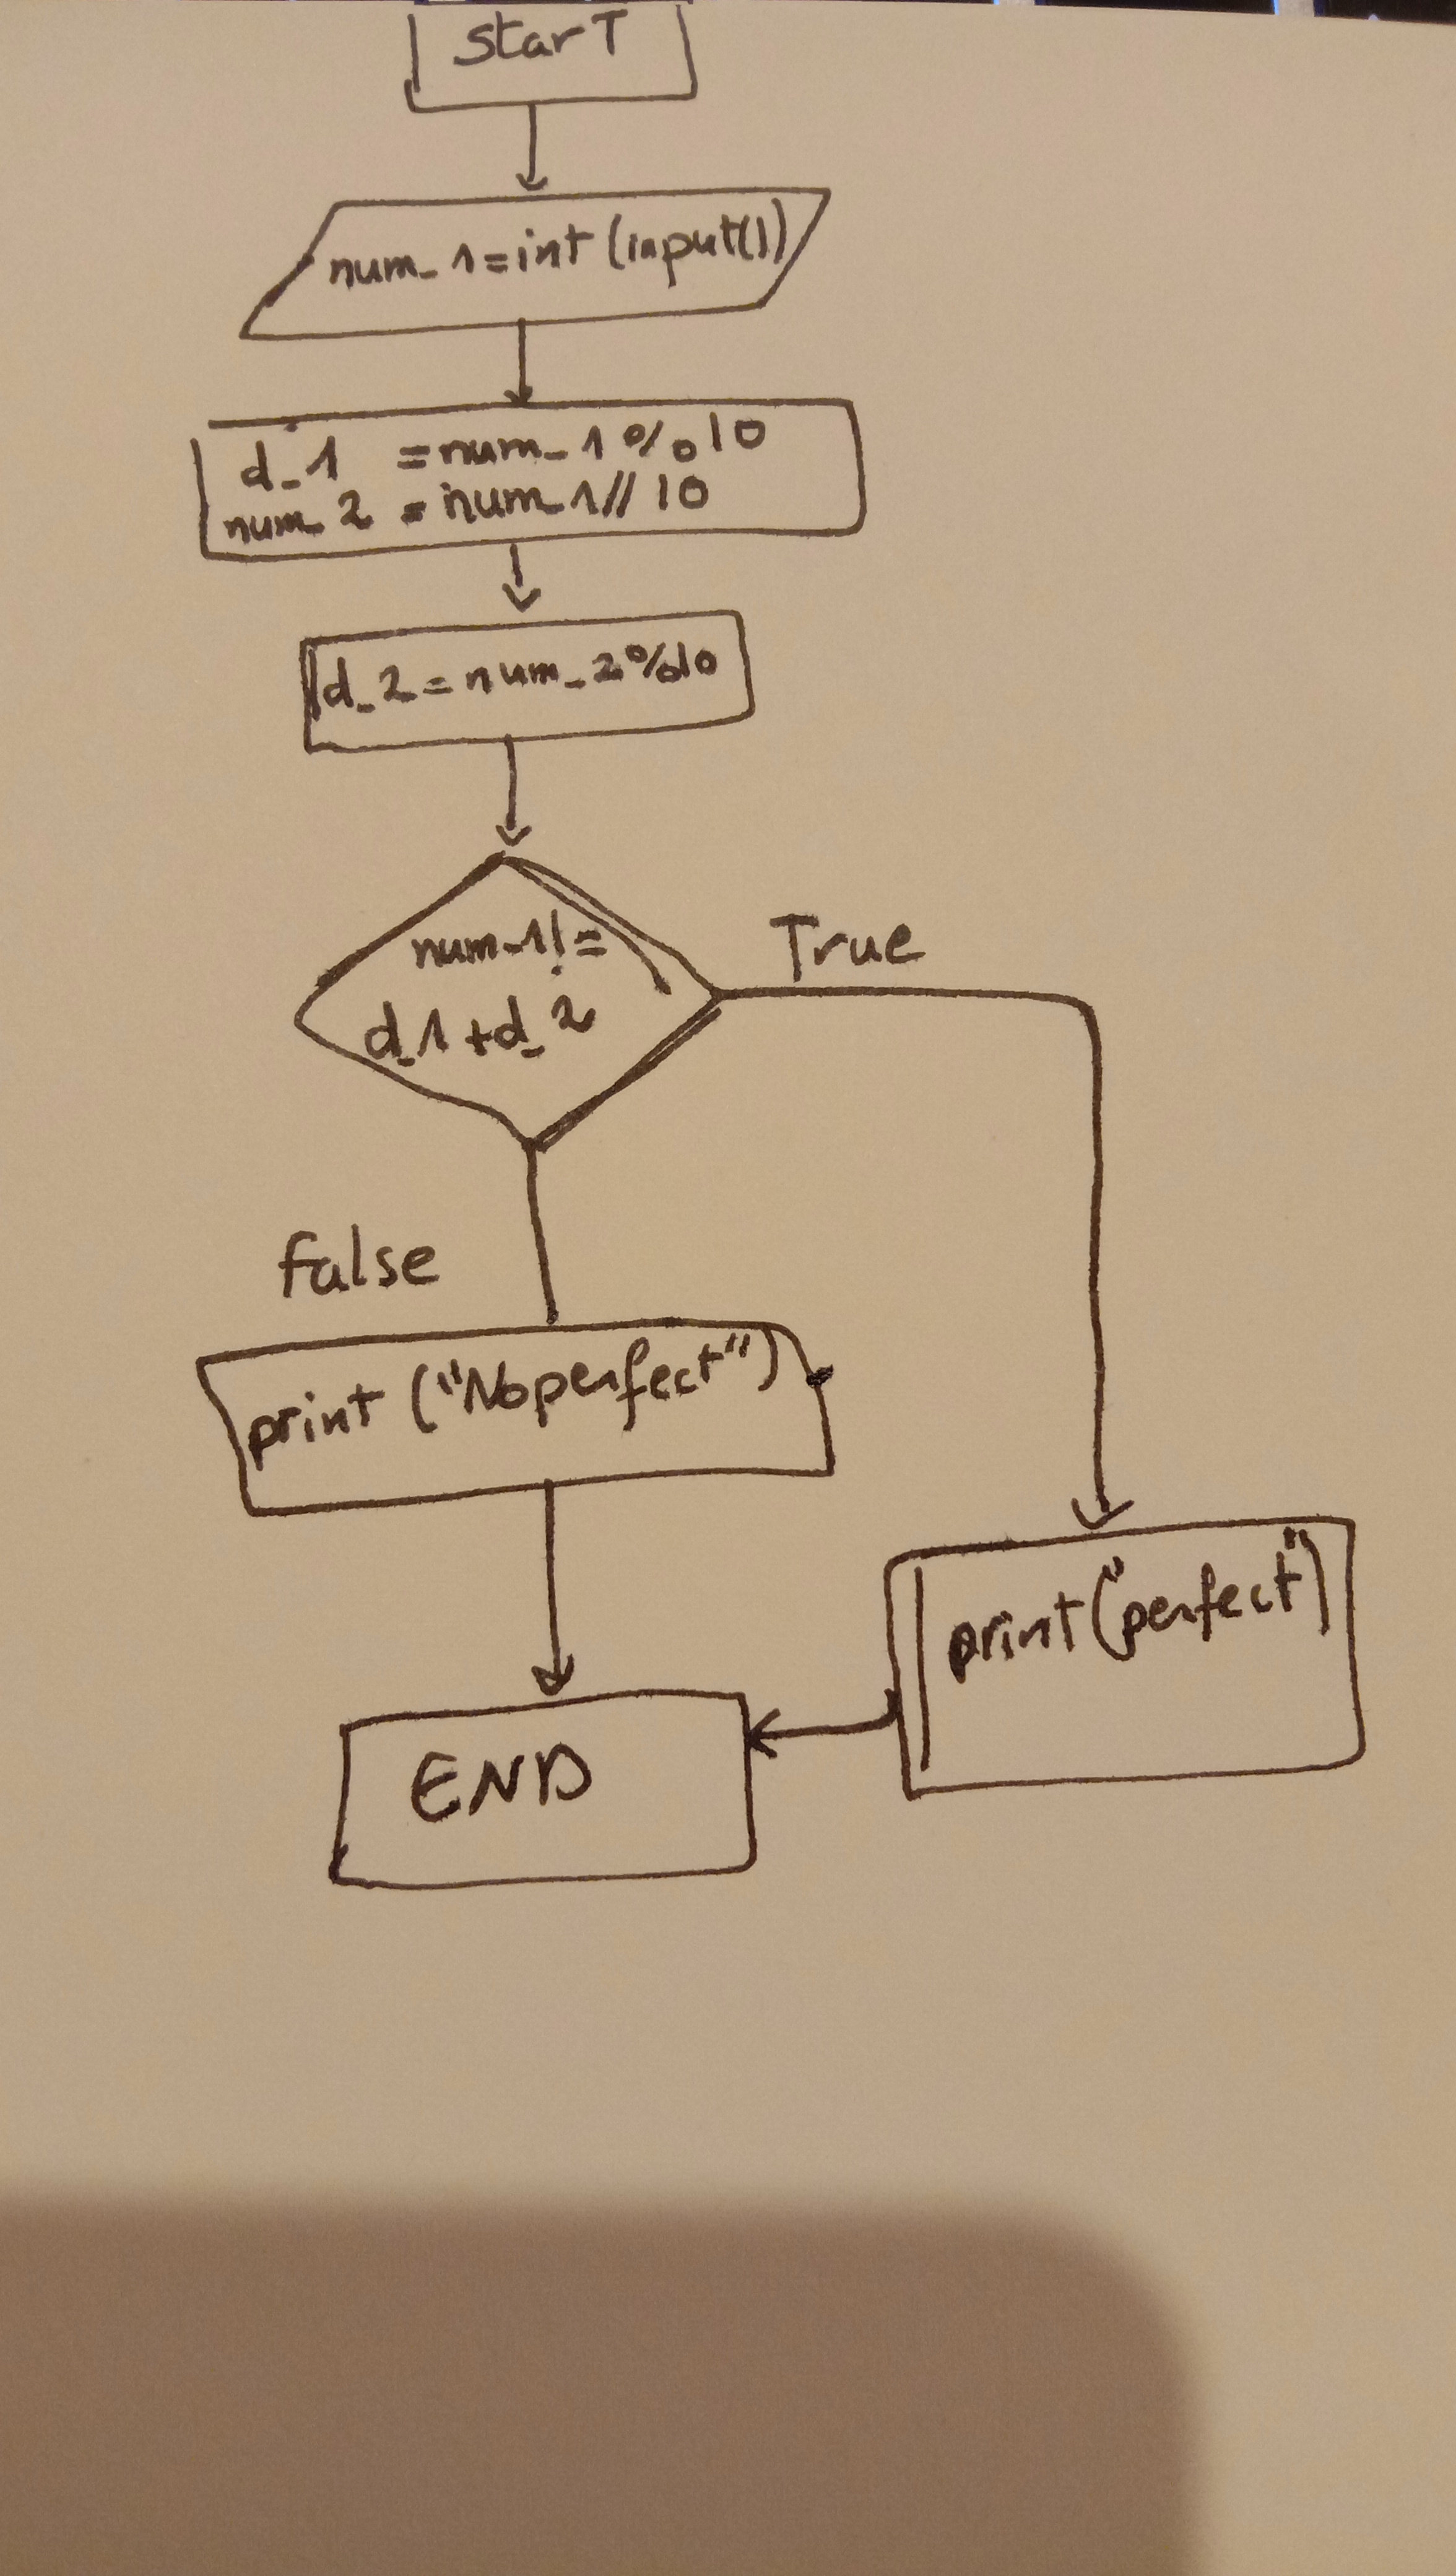 Start
num_1=int(input())
d_1 =num_1%10
num_2 = num_1//10
d_2=num_2%10
num_1!=
d_1+d_2
True
false
print ("Noperfect")
print("perfect")
END